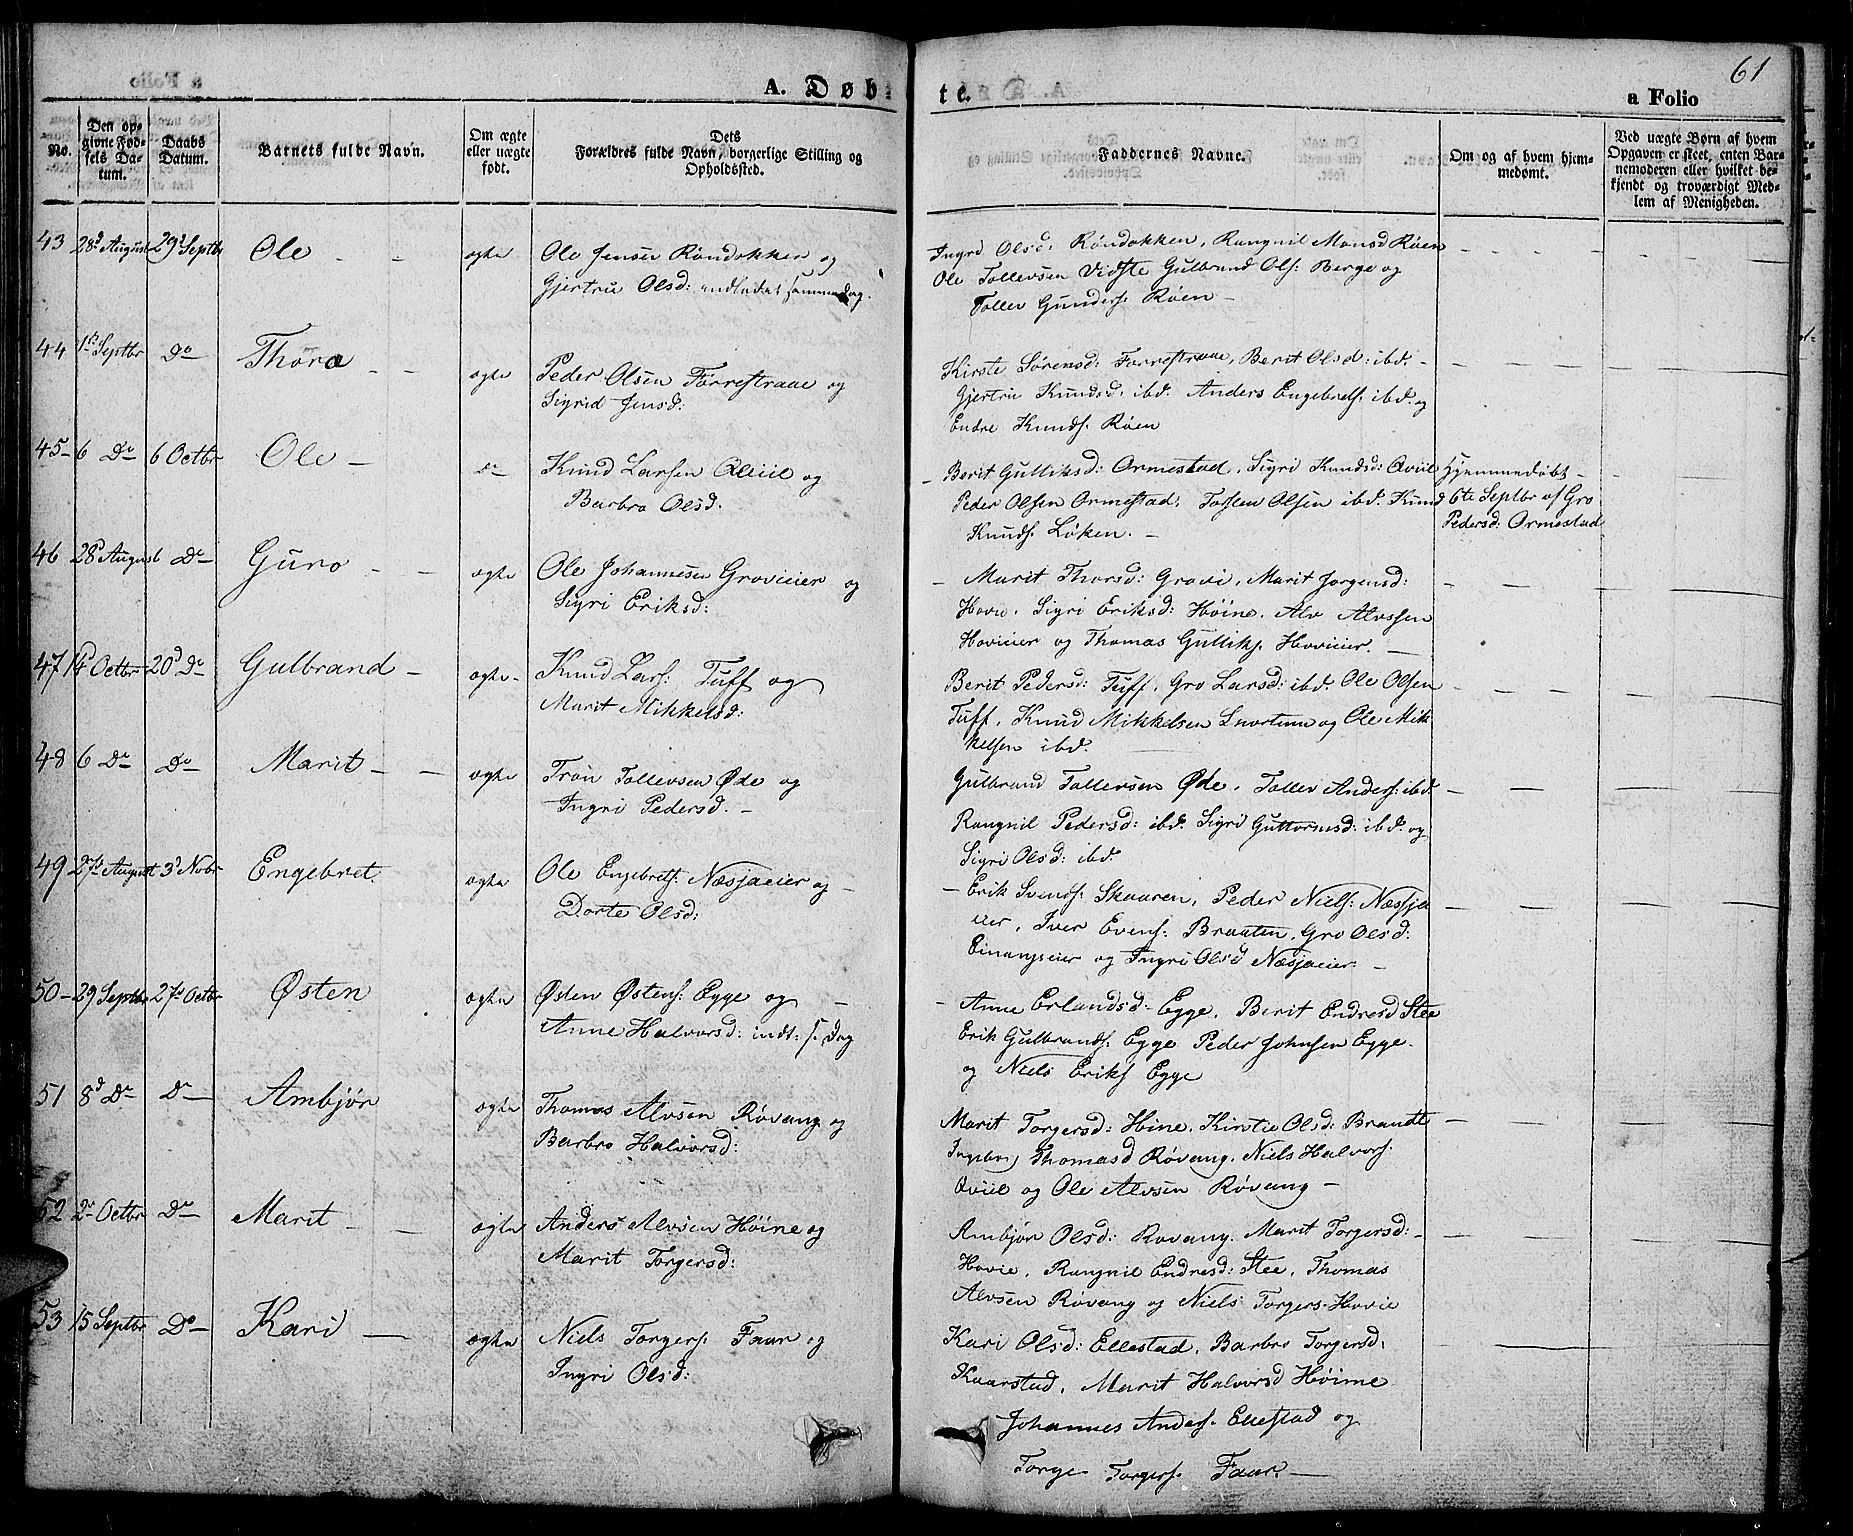 61
A. Døb-
te.
a Folio
No.
Den op-
givne Fød-
sels Da-
tum.
Daabs
Datum.
Barnets fulde Navn.
Om ægte
eller uægte
født.
Dets
Forældres fulde Navn, borgerlige Stilling og
Opholdssted.
Faddernes Navne.
Om og af hvem hjem-
medømt.
Ved uægte Børn af hvem
Opgaven er skeet, enten Bar-
nemoderen eller hvilket be-
kjendt og troværdigt Med-
lem af Menigheden.
43 28d August 29d Septbr Ole - - ogte
Ole Jensen Røndokken og
Gjertru Olsd: samme Dag.
Ingrd Olsd: Røndokken, Rangnil Monsd Røen
Ole Tollevsen Vidste Gulbrand Ols: Berge og
Tollev Gunders. Røen -
44 1ste Septbr Do Thora - - ogte
Peder Olsen Forrestraae og
Sigrid Jensd:
Kirste Sørensd: Forrestraae, Berit Olsd: ibd. -
Gjertru Knudsd: ibd. Anders Engebrets: ibd. og
Endre Knuds. Røen
45 - 6 Do 6 Octbr Ole - do
Knud Larsen Qviil og
Barbro Olsd.
- Berit Gulliksd: Ormestad, Sigri Knudsd: Qviil
Peder Olsen Ormestad, Torsten Olsen ibd. Knud
Knuds. Løken. -
Hjemmedøbt -
6te Septbr af Gro
Pedersd: Ormestad
46 28d August Do Guro - - ogte
Ole Johannesen Grovieier og
Sigri Eriksd:
- Marit Thorsd: Grovi, Marit Jorgensd:
Hovie, Sigri Eriksd: Høine, Alv Alvssen
Hovieier og Thomas Gulliks. Hovieier. -
47 14d Octbr 20d Do Gulbrand - ogte -
Knud Lars: Tuff og
Marit Mikkelsd:
Berit Pedersd: Tuff, Gro Larsd: ibd. Ole Olsen
Tuff, Knud Mikkelsen Snortum og Ole Mik-
kelsen ibd.
48 6 Do Do Marit - - ogte
Tron Tollevsen Øde og
Ingri Pedersd. -
Gulbrand Tollevsen Øde, Tollev Anders: ibd.
Rangnil Pedersd: ibd. Sigri Guttormsd: ibd. og
Sigri Olsd: ibd.
49 27de August 3d Nobr Engebret. ogte
Ole Engebrets: Næsjaeier og -
Dorte Olsd:
- Erik Svends: Skaaren, Peder Niels: Næssja
eier, Iver Evens: Braaten, Gro Olsd:
Einangseier og Ingri Olsd Næsjaeier. -
50 - 29 Septbr 27de Octbr Østen ogte
Østen Østens: Egge og -
Anne Halvorsd: indt: s. Dag
- Anne Erlandsd - Egge, Berit Endresd Stee
Erik Gulbrands. Egge Peder Johnsen Egge.
og Niels Eriks Egge
51 8d Do Do Ambjør ogte
Thomas Alvsen Røvang og
Barbro Halvorsd:
Marit Torgersd: Høine, Kirstie Olsd: Brandt
Ingebor Thomasd Røvang, Niels Halvors.
Qviil og Ole Alvsen Røvang -
52 2de Octbr Do Marit - - ogte
Anders Alvsen Høine og
Marit Torgersd:
Ambjør Olsd: Røvang. Marit Torgersd: -
Hovie, Rangnil Endresd: Stee, Thomas
Alvsen Røvang og Niels Torgers. Hovie
53 15 Septbr Do Kari - ogte
Niels Torgers. Faur og
Ingri Olsd:
Kari Olsd: Ellestad, Barbro Torgersd:
Kaarstad, Marit Halvorsd Høime
Johannes Anders. Ellestad og
Torge Torgers. Faur. -